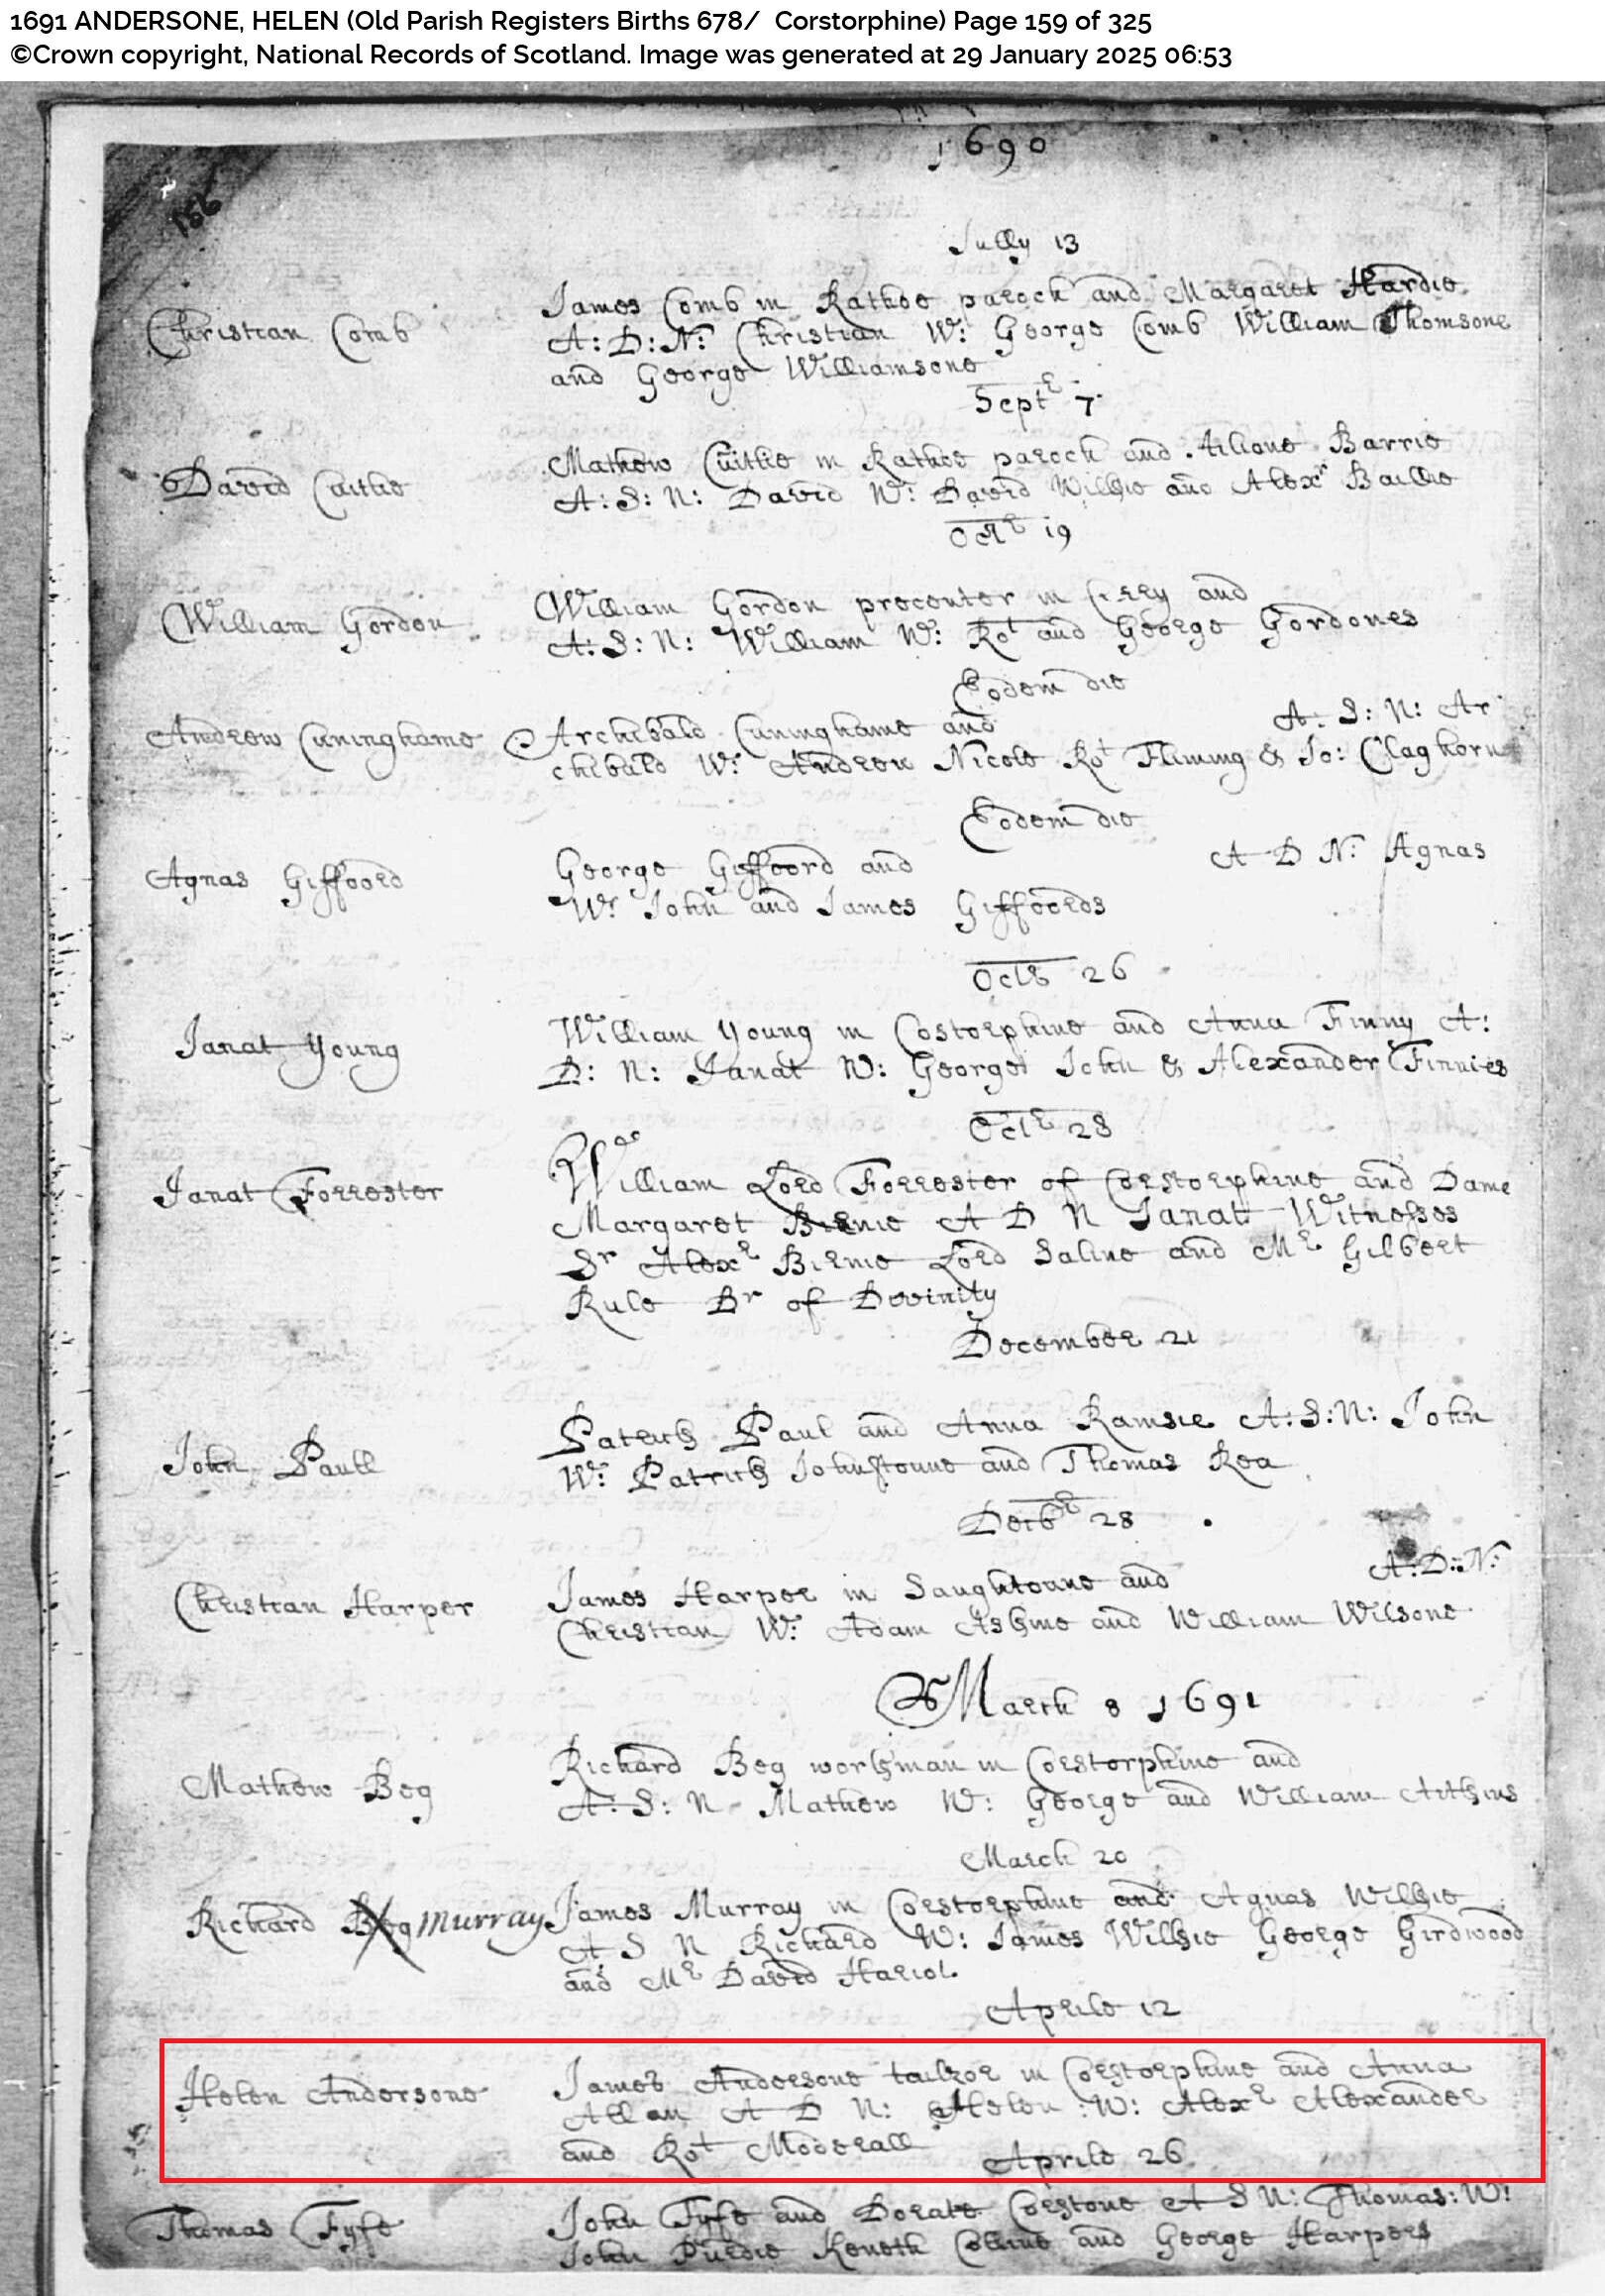 1691 ANDERSONE, HELEN (Old Parish Registers Births 678/ Corstorphine) Page 159 of 325
©Crown copyright, National Records of Scotland. Image was generated at 29 January 2025 06:53
1690
156
Jully 13
Christian Comb
James Comb in Rathoe paroch and Margaret Hardie
A: D: N: Christian W: George Comb William Thomsone
and George Williamsone
Septr 7
David Cuitlie
Mathew Cuitlie in Rathoe paroch and Barrie
A: S: N: David W: David Wilkie and Alexr Baillie
Octr 19
William Gordon
William Gordon precenter in and
A: S: N: William W: Rot and George Gordones
Eodem die
Andrew Cuninghame
Archibald Cuninghame and A: S: N: Ar
chibald W: Andrew Nicole Rot Fliming & Jo: Claghorn
Eodem die
Agnas Giffoord
George Giffoord and A D N: Agnas
W: John and James Giffoords
Octr 26
Janat Young
William Young in Costorphine and Anna Finny A:
D: N: Janat W: George John & Alexander Finnies
Octr 28
Janat Forrester
William Lord Forrester of Corstorphine and Dame
Margaret Birnie A D N Janat Witnesses
Sr Alexr Birnie Lord Saline and Mr Gilbert
Rule Dr of Devinity
December 21
John Paull
Patrick Paul and Anna Ramsie A: S: N: John
W: Patrick Johnstoune and Thomas Rea
Decbr 28
Christian Harper
James Harper in Saughtoune and A: D: N:
Christian W: Adam Askine and William Wilsone
March 8 1691
Mathew Beg
Richard Beg workman in Corstorphine and
A: S: N Mathew W: George and William Aitkins
March 20
Richard Beg Murray
James Murray in Corstorphine and Agnas Wilkie
A S N Richard W: James Wilkie George Girdwood
and Mr David Hariot
Aprile 12
Helen Andersone
James Andersone tailzor in Corstorphine and Anna
Allan A D N: Helen W: Alexr Alexander
and Rot Moderall
Aprile 26
Thomas Fyfe
John Fyfe and Corstone A S N: Thomas: W:
John Purdie Keneth and George Harpers